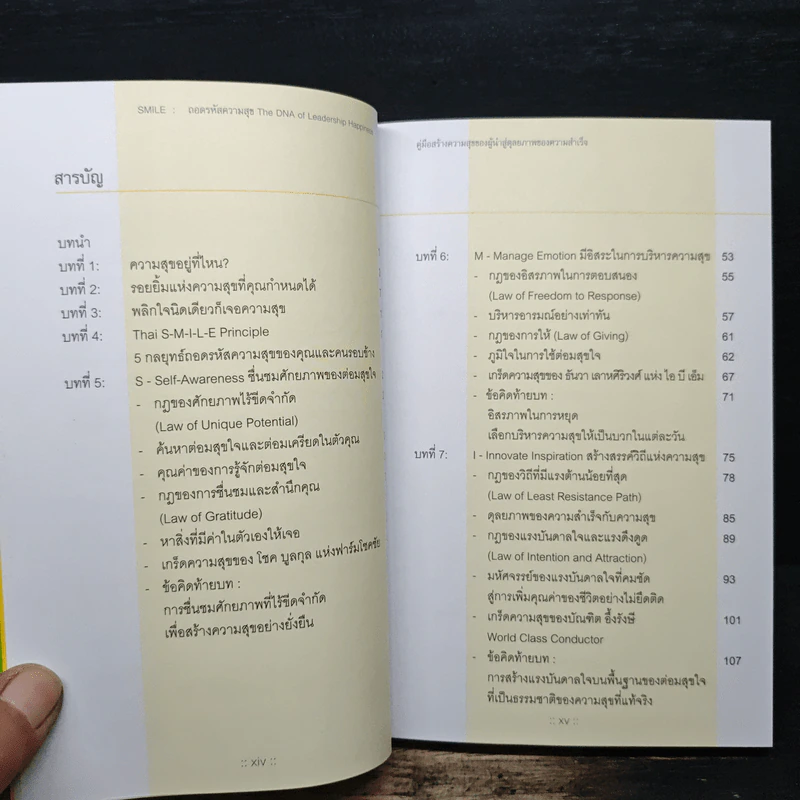 SMILE : ถอดรหัสความสุข The DNA of Leadership Happiness
สารบัญ
บทนำ
บทที่ 1: ความสุขอยู่ที่ไหน?
บทที่ 2: รอยยิ้มแห่งความสุขที่คุณกำหนดได้
บทที่ 3: พลิกใจนิดเดียวก็เจอความสุข
บทที่ 4: Thai S-M-I-L-E Principle
5 กลยุทธ์ถอดรหัสความสุขของคุณและคนรอบข้าง
บทที่ 5: S - Self-Awareness ชื่นชมศักยภาพของต่อมสุขใจ
- กฎของศักยภาพไร้ขีดจำกัด
(Law of Unique Potential)
- ค้นหาต่อมสุขใจและต่อมเครียดในตัวคุณ
- คุณค่าของการรู้จักต่อมสุขใจ
- กฎของการชื่นชมและสำนึกคุณ
(Law of Gratitude)
- หาสิ่งที่มีค่าในตัวเองให้เจอ
- เกร็ดความสุขของ โชค บูลกุล แห่งฟาร์มโชคชัย
- ข้อคิดท้ายบท :
การชื่นชมศักยภาพที่ไร้ขีดจำกัด
เพื่อสร้างความสุขอย่างยั่งยืน
:: xiv ::
คู่มือสร้างความสุขของผู้นำสู่ดุลยภาพของความสำเร็จ
บทที่ 6: M - Manage Emotion มีอิสระในการบริหารความสุข 53
- กฎของอิสรภาพในการตอบสนอง 55
(Law of Freedom to Response)
- บริหารอารมณ์อย่างเท่าทัน 57
- กฎของการให้ (Law of Giving) 61
- ภูมิใจในการใช้ต่อมสุขใจ 62
- เกร็ดความสุขของ ธันวา เลาหศิริวงศ์ แห่ง ไอ บี เอ็ม 67
- ข้อคิดท้ายบท : 71
อิสรภาพในการหยุด
เลือกบริหารความสุขให้เป็นบวกในแต่ละวัน
บทที่ 7: I - Innovate Inspiration สร้างสรรค์วิถีแห่งความสุข 75
- กฎของวิถีที่มีแรงต้านน้อยที่สุด 78
(Law of Least Resistance Path)
- ดุลยภาพของความสำเร็จกับความสุข 85
- กฎของแรงบันดาลใจและแรงดึงดูด 89
(Law of Intention and Attraction)
- มหัศจรรย์ของแรงบันดาลใจที่คมชัด 93
สู่การเพิ่มคุณค่าของชีวิตอย่างไม่ยึดติด
- เกร็ดความสุขของบัณฑิต อึ้งรังษี 101
World Class Conductor
- ข้อคิดท้ายบท : 107
การสร้างแรงบันดาลใจบนพื้นฐานของต่อมสุขใจ
ที่เป็นธรรมชาติของความสุขที่แท้จริง
:: xv ::